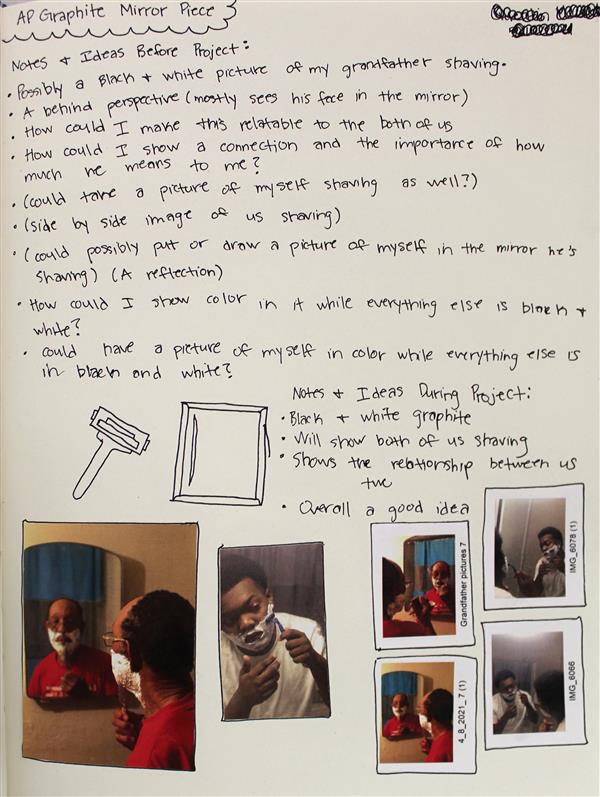 AP Graphite Mirror Piece
Notes & Ideas Before Project:
• Possibly a Black & white picture of my grandfather shaving.
• A behind perspective (mostly sees his face in the mirror)
• How could I make this relatable to the both of us
• How could I show a connection and the importance of how
much he means to me?
• (could take a picture of myself shaving as well?)
• (side by side image of us shaving)
• (could possibly put or draw a picture of myself in the mirror he's
shaving) (A reflection)
• How could I show color in it while everything else is black &
white?
• could have a picture of myself in color while everything else is
in black and white?
Notes & Ideas During Project:
• Black & white graphite
• Will show both of us shaving
• Shows the relationship between us
two
• Overall a good idea
Grandfather pictures 7
IMG_6078 (1)
4_8_2021_7 (1)
IMG_6066